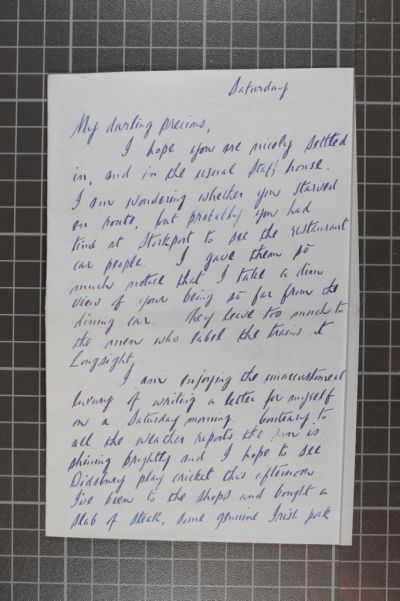 Saturday
My darling precious,
I hope you are nicely settled
in, and in the usual Staff house.
I am wondering whether you starved
en route, but probably you had
time at Stockport to see the restaurant
car people. I gave them so
much notice that I take a dim
view of your being so far from the
dining car. They leave too much to
the men who label the trains at
Longsight.
I am enjoying the unaccustomed
luxury of writing a letter for myself
on a Saturday morning. Contrary to
all the weather reports the sun is
shining brightly and I hope to see
Didsbury play cricket this afternoon.
I've been to the shops and bought a
slab of steak, some genuine Irish pork